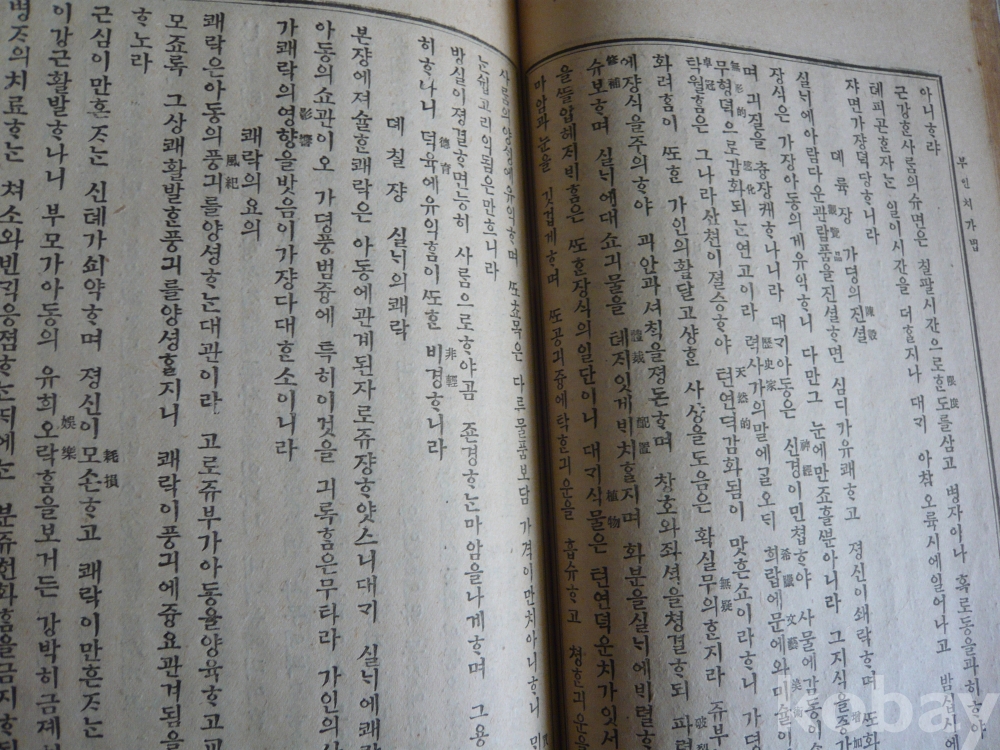 부인치가법
아니ᄒᆞ랴
근강ᄒᆞᆫ사ᄅᆞᆷ의슈면은 칠팔시간으로ᄒᆞᆫ도를삼고 병자이나 혹로동을과히ᄒᆞ야
限度
톄피곤ᄒᆞᆫ자ᄂᆞᆫ 일이시간을 더ᄒᆞᆯ지나 대뎌 아ᄎᆞᆷ 오륙시에일어나고 밤
쟈면가쟝뎍당ᄒᆞ니라
뎨륙쟝 가뎡의진셜
陳設
실ᄂᆡ에아람다운관람품을진셜ᄒᆞ면 심디가유쾌ᄒᆞ고 졍신이쇄락ᄒᆞ며 ᄯᅩ
觀覽品
장식은 가장아동의게유익ᄒᆞ니 다만그 눈에만죠흘ᄲᅮᆫ아니라 그지식을증가
增加
며 긔질을 츙장케ᄒᆞ나니라 대뎌아동은 신경이민쳡ᄒᆞ야 사물에감동이
神經
무형뎍으로감화되ᄂᆞᆫ연고이라 력사가의말에ᄀᆞᆯ오ᄃᆡ 희랍에문예와미슐이
無形的 感化 歷史家 希臘 文藝 美術
탁월ᄒᆞᆷ은 그나라산쳔이졀승ᄒᆞ야 텬연뎍감화됨이 맛흔쇼이라ᄒᆞ니 가뎡
卓冠 天然的
화려ᄒᆞᆷ이 ᄯᅩᄒᆞᆫ 가인의활달고샹ᄒᆞᆫ 사샹을도음은 확실무의ᄒᆞᆫ지라 쥬부
無疑
에쟝식을주의ᄒᆞ야 과안과셔칙을졍돈ᄒᆞ며 창호와좌셕을쳥결ᄒᆞ되 파
破
슈보ᄒᆞ며 실ᄂᆡ에대쇼긔물을 톄지잇게ᄇᆡ치ᄒᆞᆯ지며 화분을실ᄂᆡ에ᄇᆡ렬ᄒᆞ
修補 配置
을ᄯᅳᆯ압헤지ᄇᆡᄒᆞᆷ은 ᄯᅩᄒᆞᆫ장식의일단이니 대뎌식물은 텬연뎍운치가잇서
植物
마암과눈을 깃겁게ᄒᆞ며 ᄯᅩ공긔즁에탁ᄒᆞᆫ긔운을 흡슈ᄒᆞ고 쳥ᄒᆞᆫ긔운을
사ᄅᆞᆷ의양싱에유익ᄒᆞ며 ᄯᅩ쵸목은 다른물품보담 가격이만치아니ᄒᆞ니
ᄂᆞᆫ쉽고리익됨은만흐니라
방실이졍결ᄒᆞ면능히 사ᄅᆞᆷ으로ᄒᆞ야곰 죤경ᄒᆞᄂᆞᆫ마암을나게ᄒᆞ며 그용
히ᄒᆞ나니 덕육에유익ᄒᆞᆷ이ᄯᅩᄒᆞᆫ 비경ᄒᆞ니라
德育 非輕
뎨칠쟝 실ᄂᆡ의쾌락
본쟝에져슐ᄒᆞᆫ쾌락은 아동에관계된자로쥬쟝ᄒᆞ얏스니대뎌 실ᄂᆡ에쾌락
아동의쇼관이오 가뎡풍범즁에 특히이것을 긔록ᄒᆞᆷ은무타라 가인의
가쾌락의영향을밧음이가쟝다대ᄒᆞᆫ소이니라
影響
쾌락의요의
쾌락은아동의풍긔를양셩ᄒᆞᄂᆞᆫ대관이라 고로쥬부가아동을양육ᄒᆞ고교
風紀
모죠록 그상쾌활발ᄒᆞᆫ풍긔를양셩ᄒᆞᆯ지니 쾌락이풍긔에즁요관겨됨을
ᄒᆞ노라
근심이만흔ᄌᆞᄂᆞᆫ 신톄가쇠약ᄒᆞ며 졍신이모손ᄒᆞ고 쾌락이만흔ᄌᆞᄂᆞᆫ
耗損
이강근활발ᄒᆞ나니 부모가아동의 유희오락ᄒᆞᆷ을보거든 강박히금졔
娛樂
병ᄌᆞ의치료ᄒᆞᄂᆞᆫ
kobay